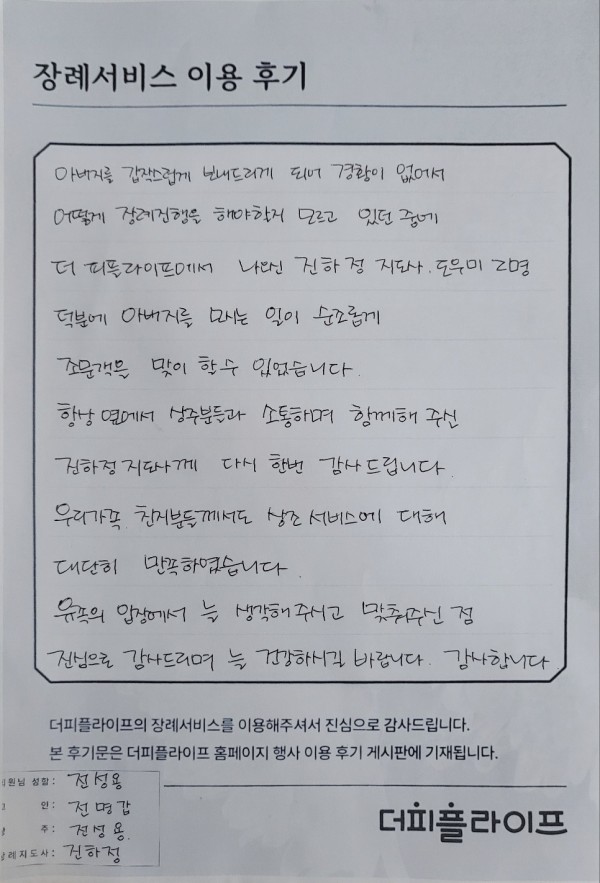 장례서비스 이용 후기
아버지를 갑작스럽게 보내드리게 되어 경황이 없어서
어떻게 장례진행을 해야할지 모르고 있던 중에
더 피플라이프에서 나오신 진하정 지도사. 도우미 2명
덕분에 아버지를 모시는 일이 순조롭게
조문객을 맞이 할 수 있었습니다.
항상 옆에서 상주분들과 소통하며 함께해 주신
진하정지도사께 다시 한번 감사드립니다.
우리가족 친지분들께서도 상조 서비스에 대해
대단히 만족하였습니다.
유족의 입장에서 늘 생각해주시고 맞춰주신 점
진심으로 감사드리며 늘 건강하시길 바랍니다. 감사합니다
더피플라이프의 장례서비스를 이용해주셔서 진심으로 감사드립니다.
본 후기문은 더피플라이프 홈페이지 행사 이용 후기 게시판에 기재됩니다.
원님 성함: 전성용
인: 전명갑
주: 전성용.
례지도사: 진하정
더피플라이프